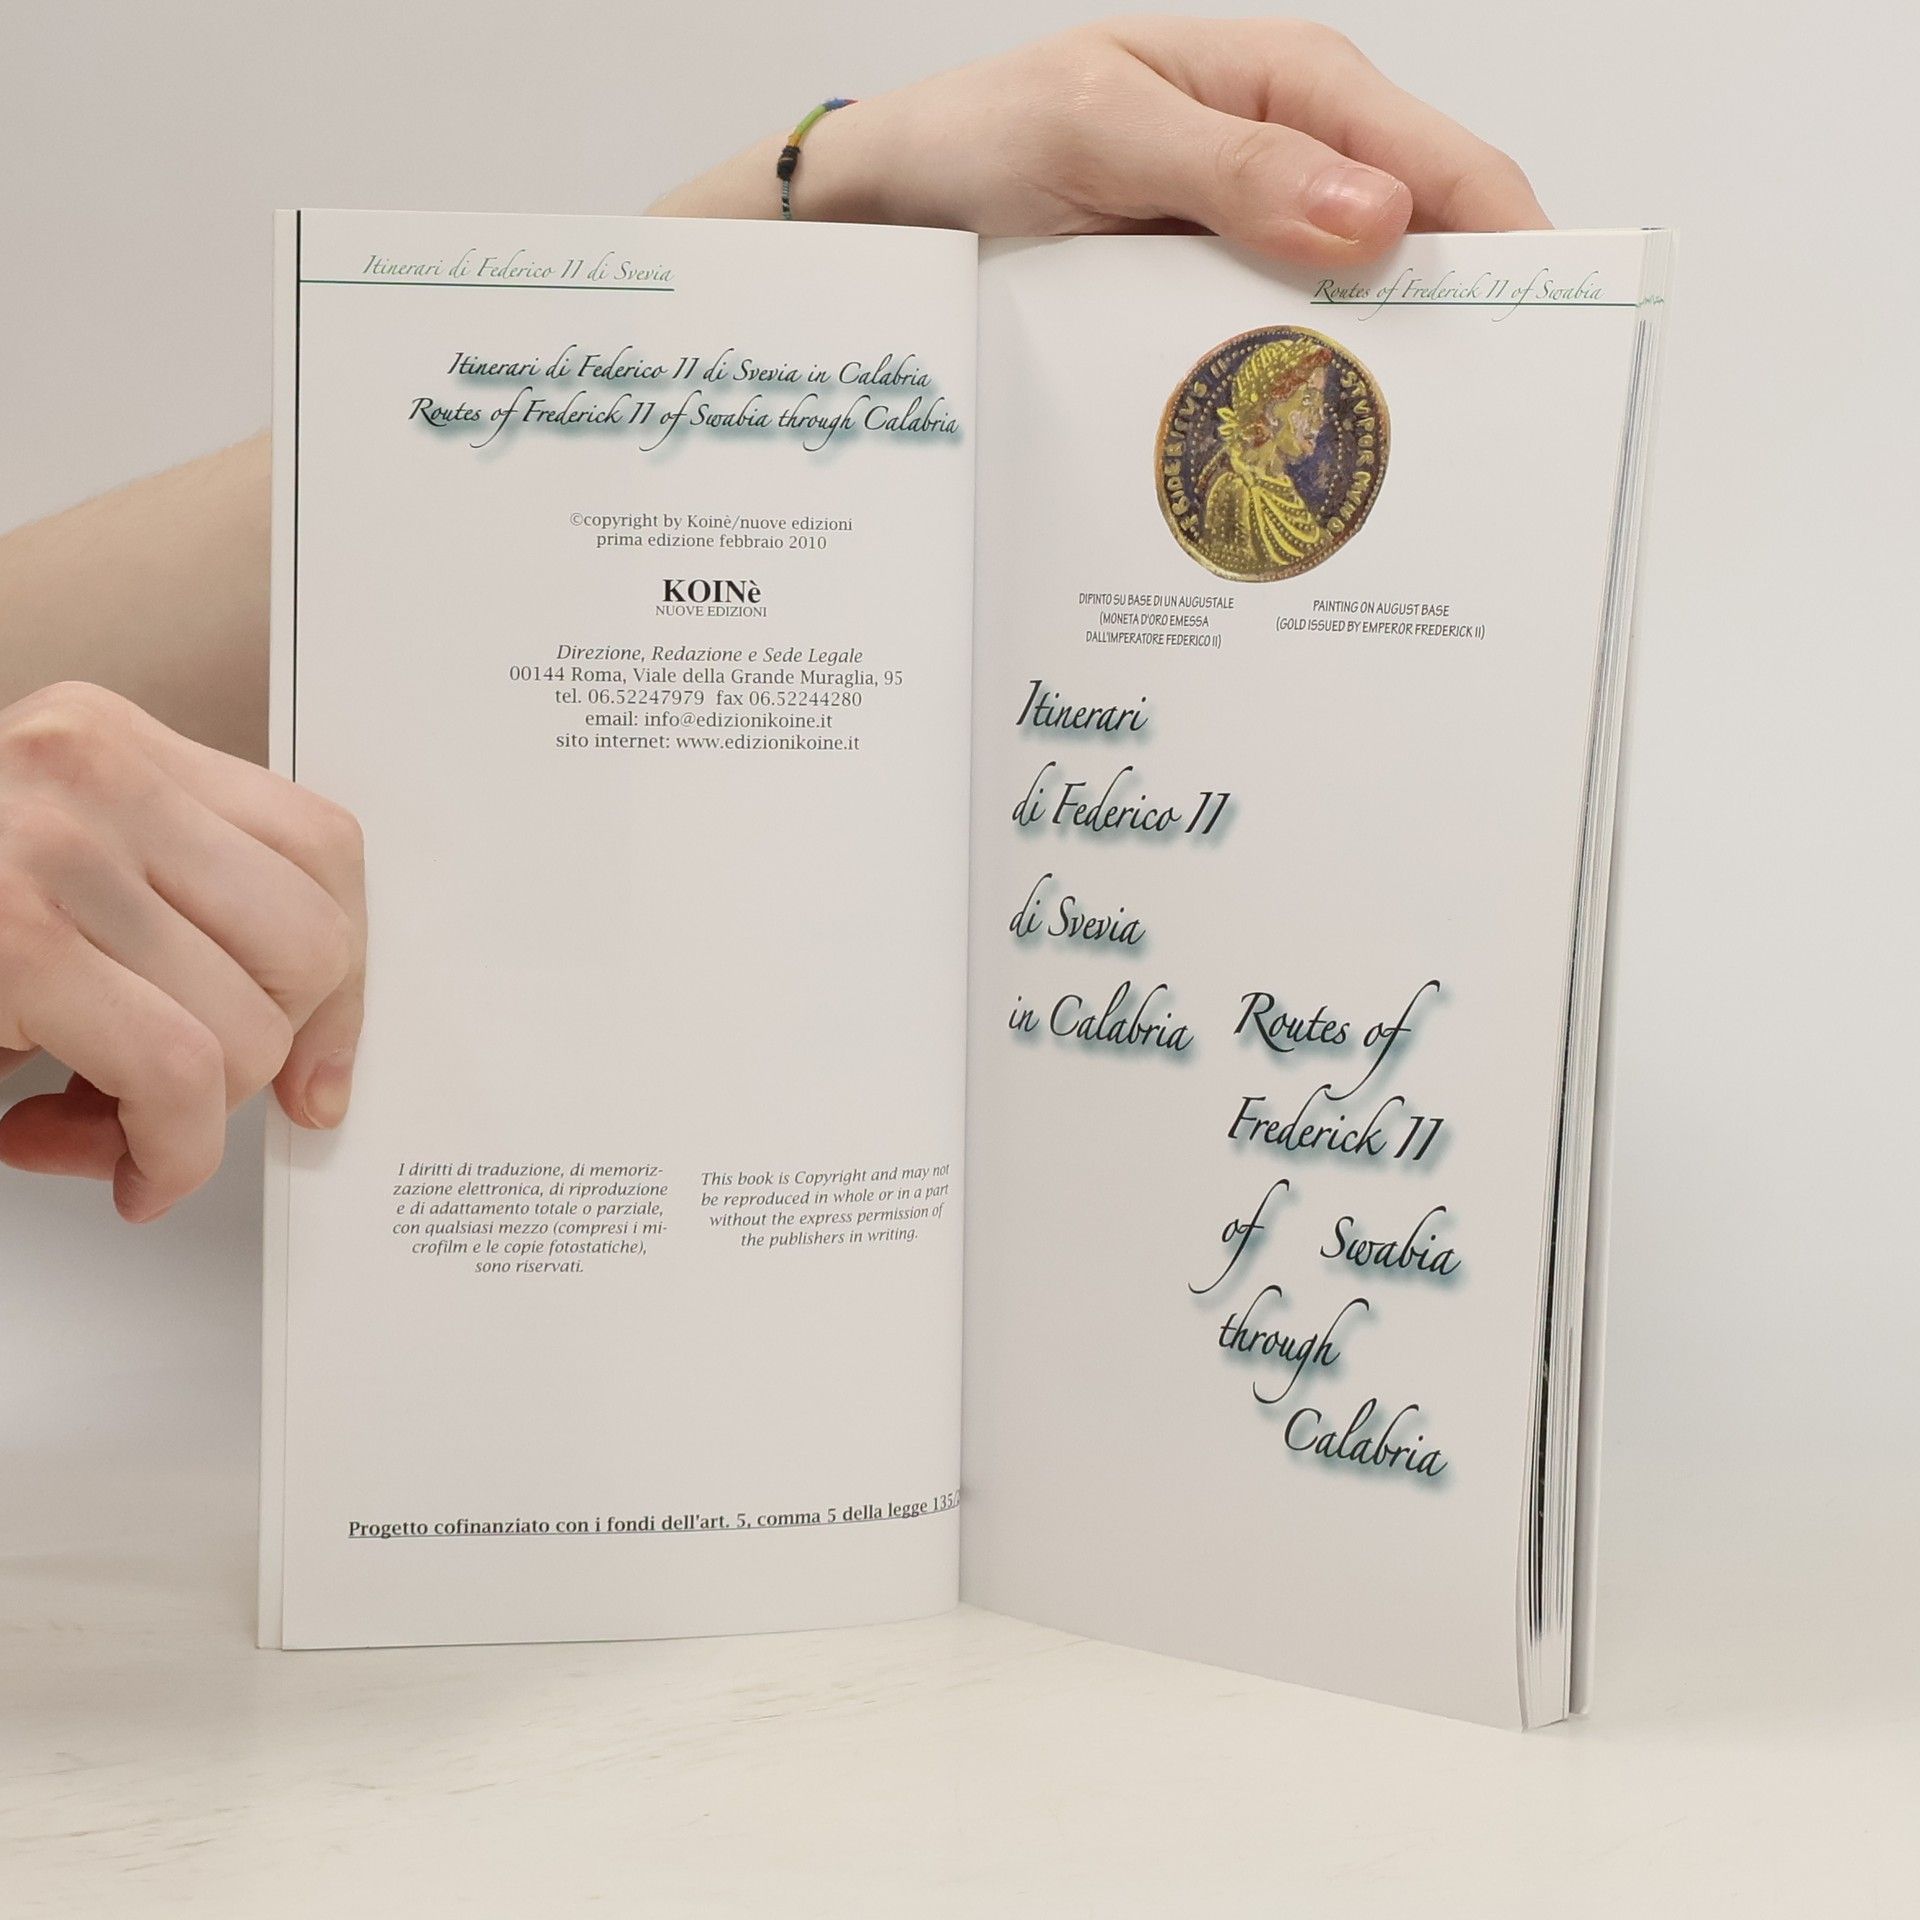 Itinerari di Federico II di Svevia
Itinerari di Federico II di Svevia in Calabria
Routes of Frederick II of Swabia through Calabria
©copyright by Koinè/nuove edizioni
prima edizione febbraio 2010
KOINè
NUOVE EDIZIONI
Direzione, Redazione e Sede Legale
00144 Roma, Viale della Grande Muraglia, 95
tel. 06.52247979 fax 06.52244280
email: info@edizionikoine.it
sito internet: www.edizionikoine.it
I diritti di traduzione, di memoriz-
zazione elettronica, di riproduzione
e di adattamento totale o parziale,
con qualsiasi mezzo (compresi i mi-
crofilm e le copie fotostatiche),
sono riservati.
This book is Copyright and may not
be reproduced in whole or in a part
without the express permission of
the publishers in writing.
Progetto cofinanziato con i fondi dell'art. 5, comma 5 della legge 135/
Routes of Frederick II of Swabia
STVPOR MVND
DIPINTO SU BASE DI UN AUGUSTALE
(MONETA D'ORO EMESSA
DALL'IMPERATORE FEDERICO II)
PAINTING ON AUGUST BASE
(GOLD ISSUED BY EMPEROR FREDERICK II)
Itinerari
di Federico II
di Svevia
in Calabria
Routes of
Frederick II
of Swabia
through
Calabria